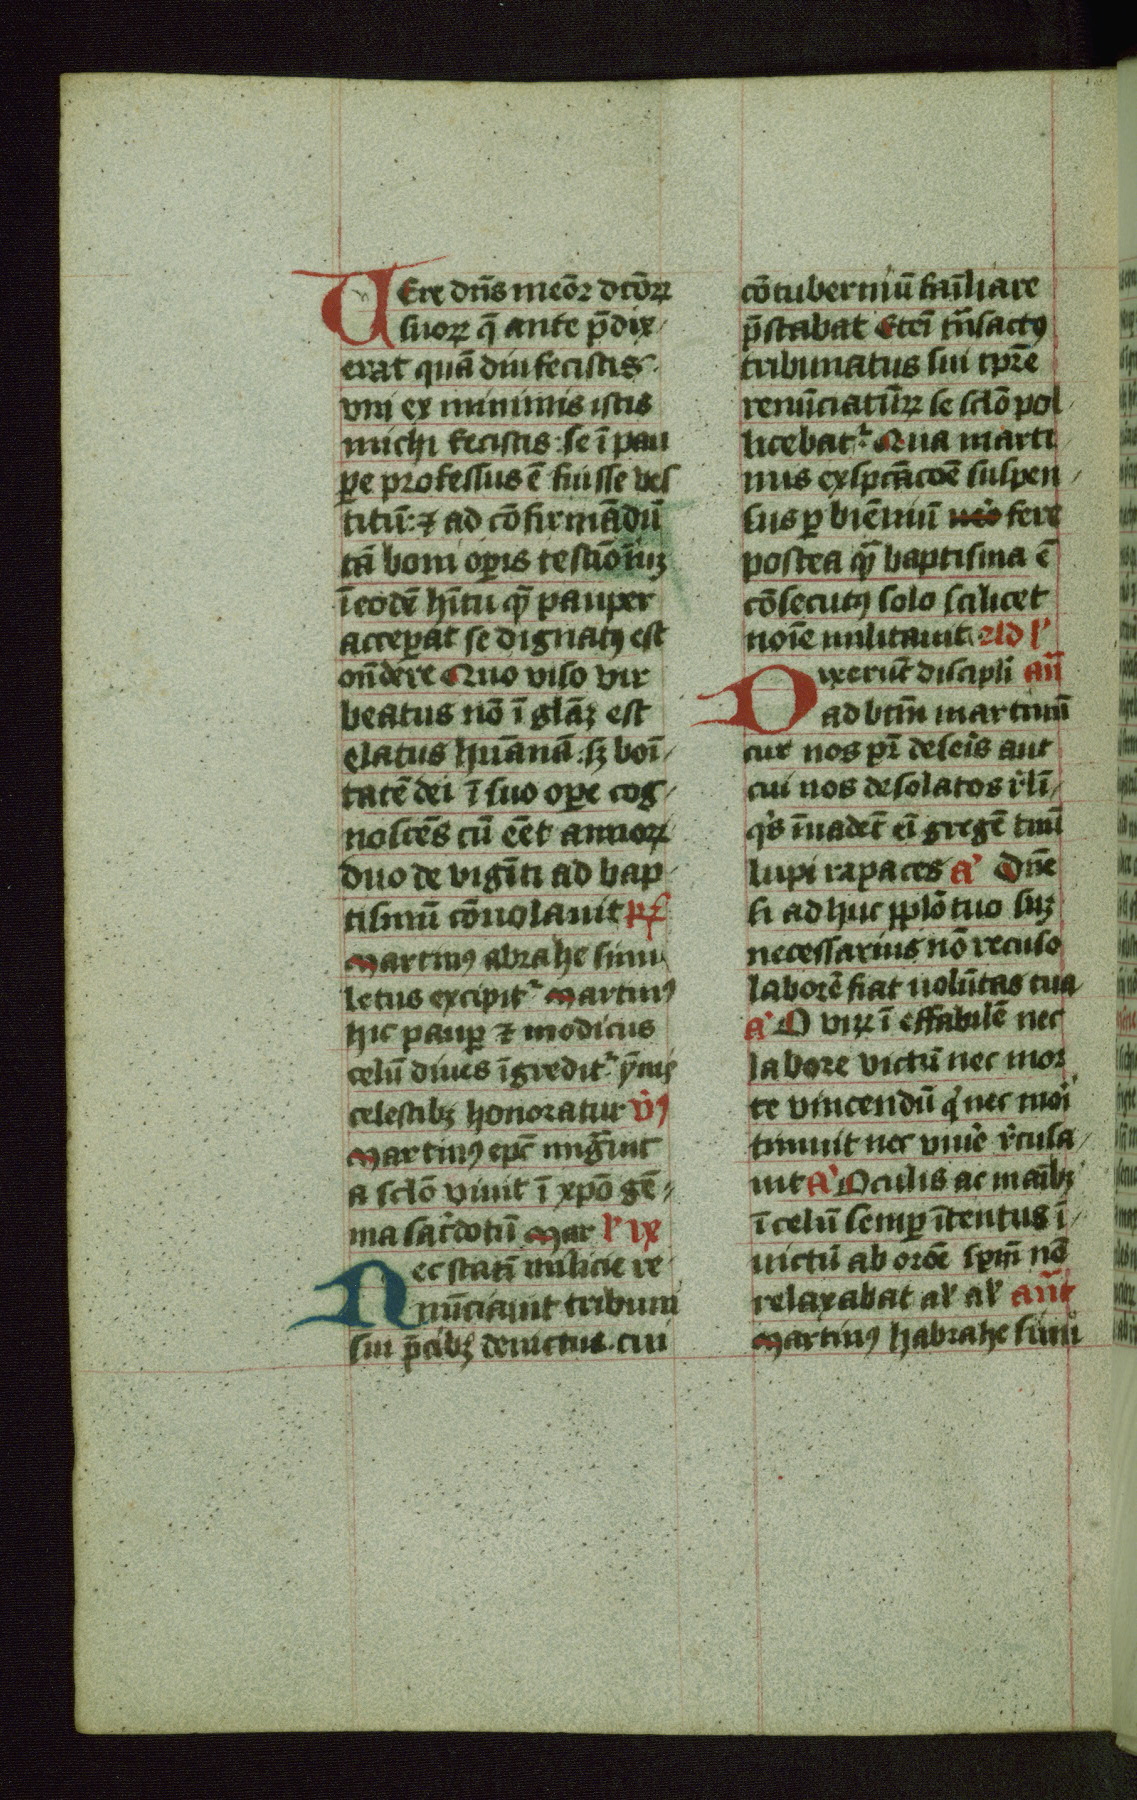 UEre dn̄s meōr dcōꝝ
suoꝝ q̄ ante p̄dix
erat quā diu fecistis
vni ex minimis istis
michi fecistis se ī pau
ꝑe professus ē fuisse ves
titū: ⁊ ad cōfirmādū
tā boni oꝑis testiōīuꝫ
ī eodē hītu qꝫ pauper
acceꝑat se dignatꝰ est
on̄dere Quo viso vir
beatus nō ī glāꝫ est
elatus huānā sꝫ boī
tatē dei ī suo oꝑe cog
noscēs cū eēt annoꝝ
duo de vigīti ad bap
tismū cōuolauit
Martinꝰ abrahe sinu
letus excipit᷑ Martinꝰ
hic pauꝑ ⁊ modicus
celū diues īgredit᷑ ym̄is
celestibꝫ honoratur v̓ꝰ
Martinꝰ epc̄ migᷓuit
a sclō viuit ī xp̄o gē
ma sac̓dotū Mar l' ix
Nec statī milicie re
nūciauit tribuni
sui p̄cibꝫ deuictus cui
cōtuberniū fāiliare
p̄stabat Eteī tn̄sactꝰ
tribunatus sui tp̄re
renūciatūꝝ se sclō pol
licebat᷑ Qua marti
nus exspc̄acōē suspen
sus ꝑ biēniū fere
postea qꝫ baptisma ē
cōsecutꝰ solo scilicet
noīe militauit Ad l'
Dixerūt discipli an̄
ad btm̄ martinū
cur nos pr̄ deseīs aut
cui nos desolatos r̓lī
q̓s īuadet eī gregē tuū
lupi rapaces a' Dn̄e
si ad huc pplō tuo suꝫ
necessarius nō recuso
laborē fiat volūtas tua
a' O viꝝ ī effabilē nec
labore victū nec mor
te vincendū q̓ nec moī
timuit nec viuē r̓cusa
uit a' Oculis ac māibꝫ
ī celū semꝑ ītentus ī
uictū ab orōē spm̄ nō
relaxabat al' al' an̄t
Martinꝰ habrahe sinu